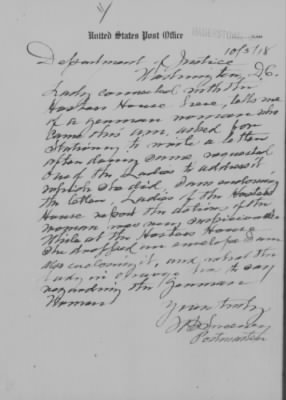 United States Post Office
HAGERSTOWN
10/3/18
Department of Justice
Washington, D.C.
Lady connected with the
Hostess House here, tells me
of a german woman who
came this a.m. asked for
Stationery to write a letter
after doing same requested
one of the Ladies to address it,
which she did, I am enclosing
the letter, Ladies of the Hostess
House report the actions of the
woman was very suspicious
While at the Hostess House
She dropped an envelope I am
also enclosing it, and what the
Lady in charge has to say
regarding the German
Woman
Yours truly
Sweeney
Postmaster